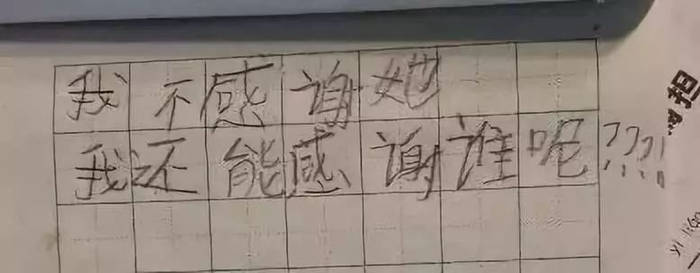 我不感谢她
我还能感谢谁呢????!